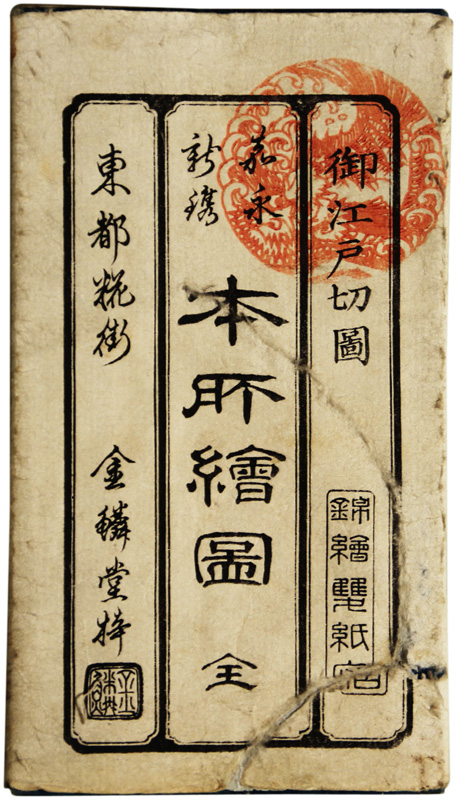 御江戸切圖
錦繪雙紙
嘉永
新鐫
本所繪圖 全
東都糀街 金鱗堂梓